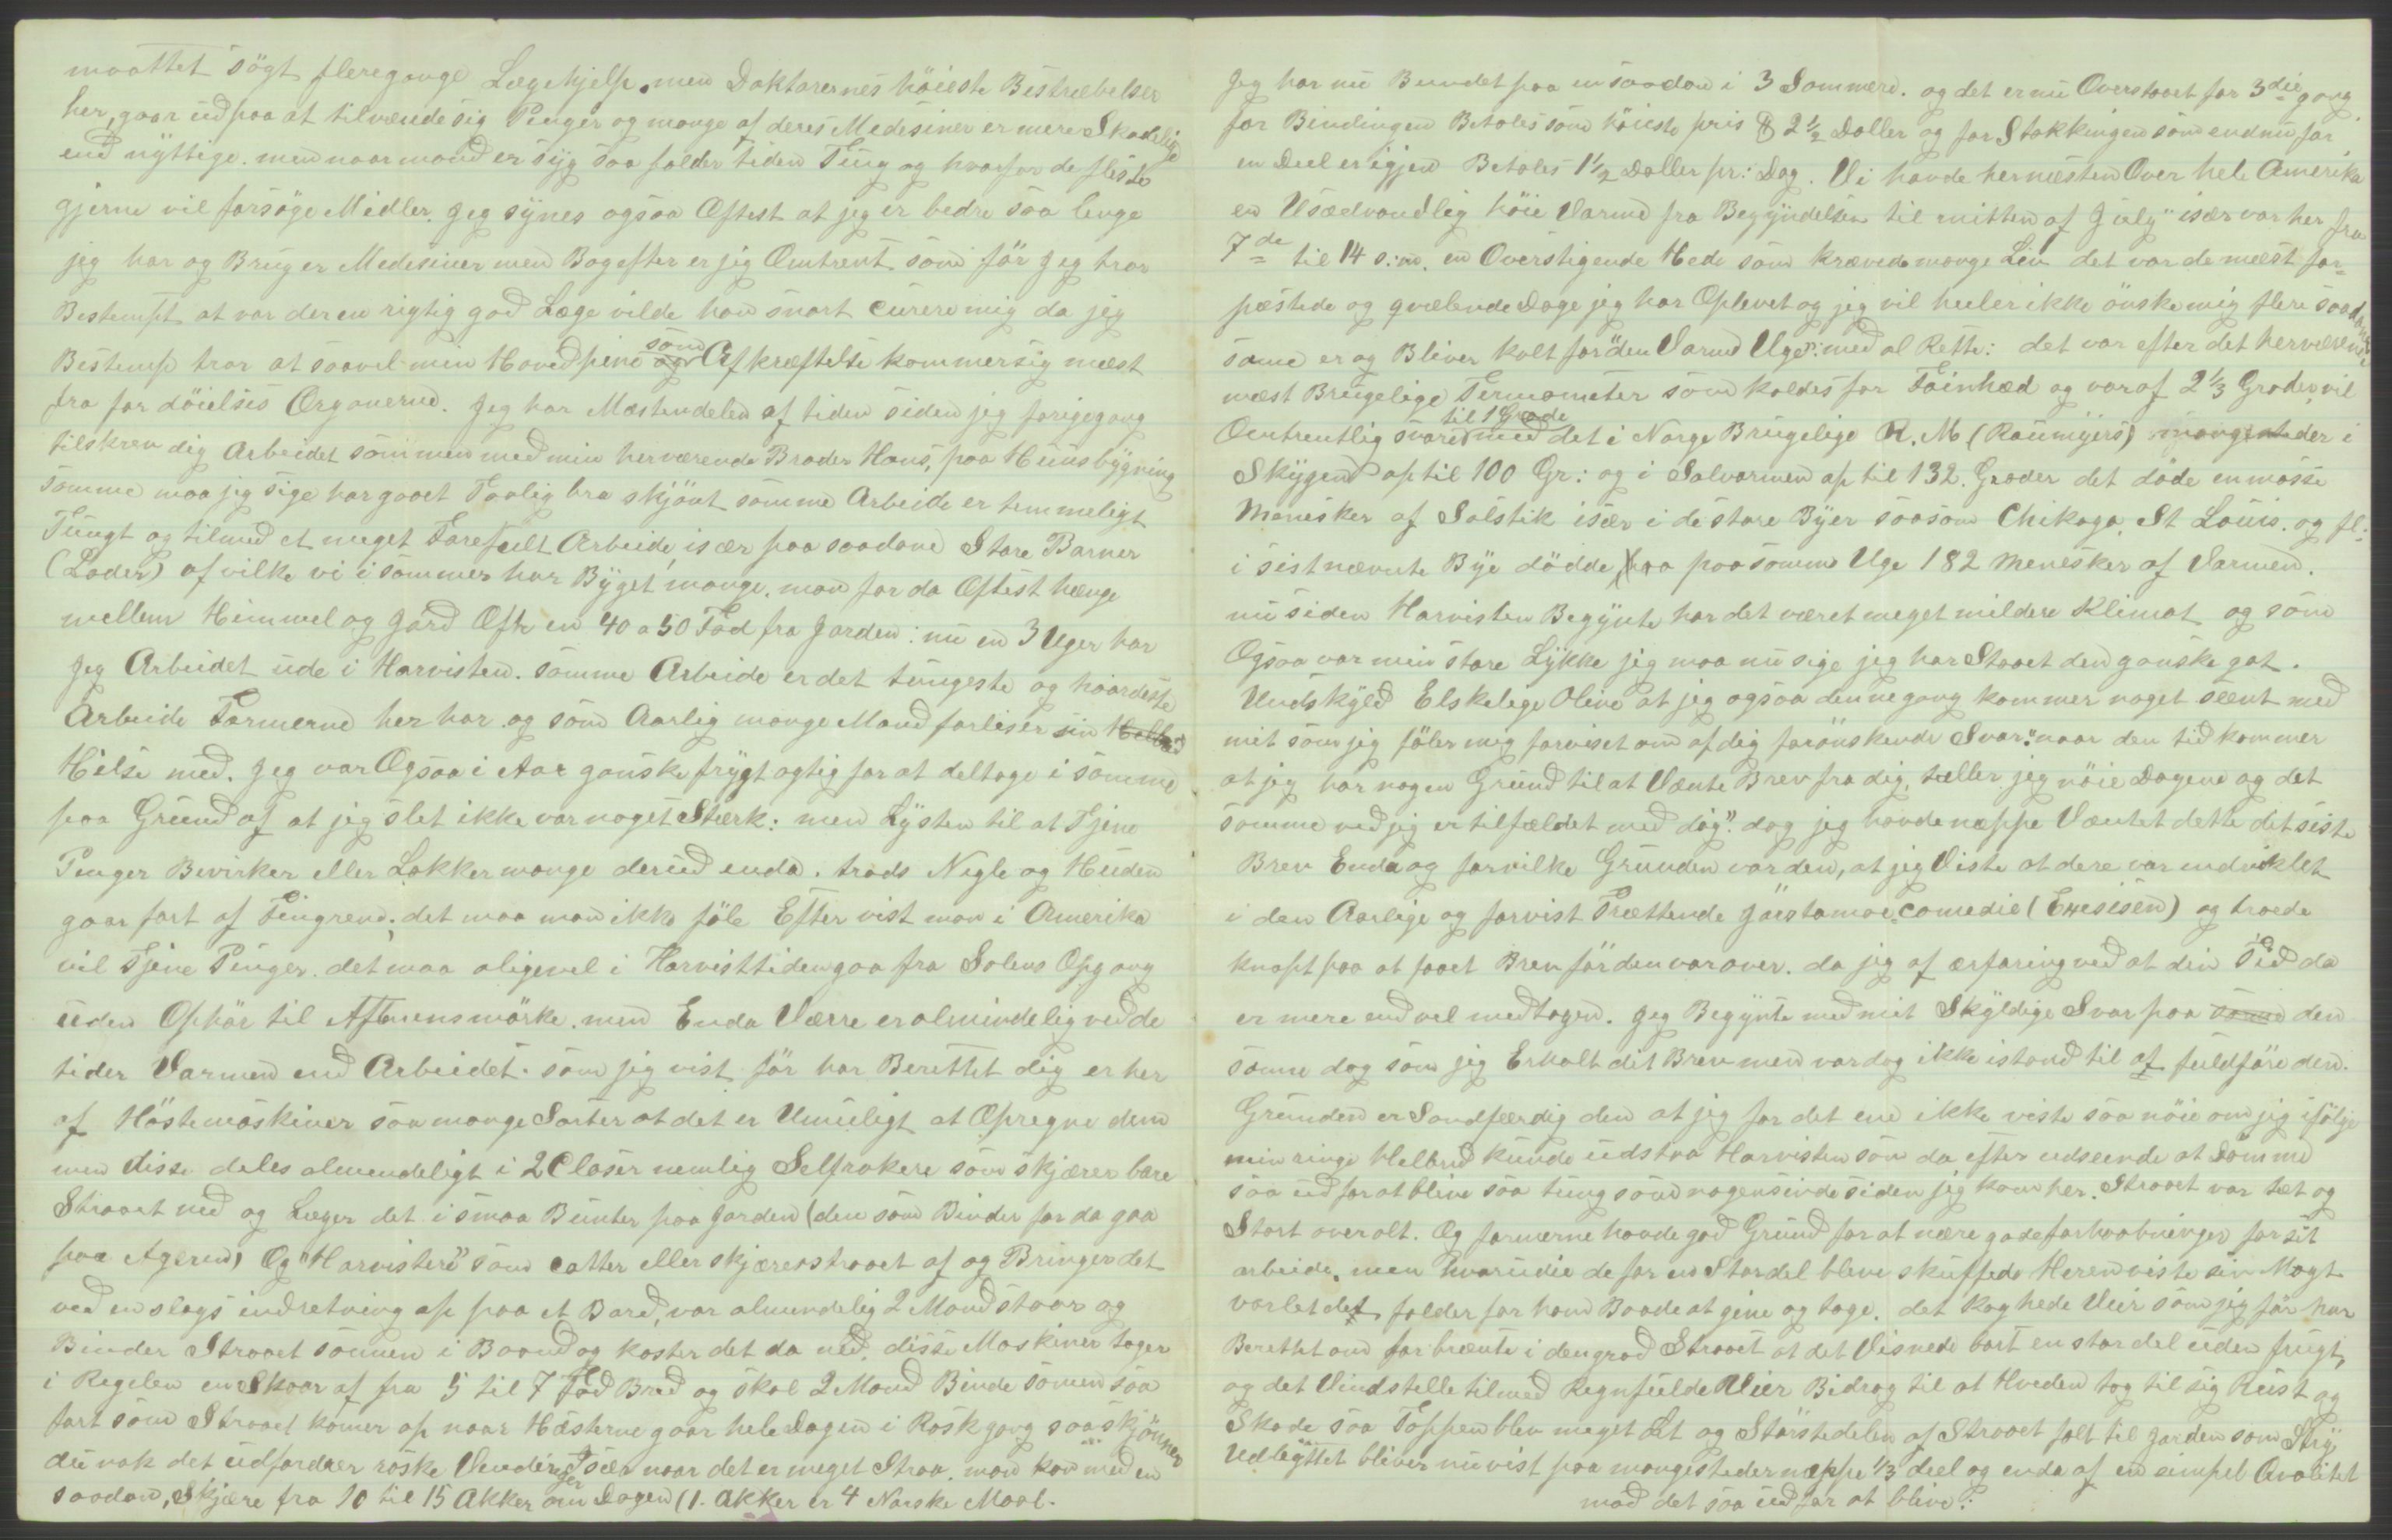 maattet søgt fleregange Lægehjelp. men Doktorernes höieste Bestræbelser
her, gaar ud paa at tilvende sig Penger og mange af deres Medesiner er mere Skadelige
end nyttige. men naar mand er syg saa falder tiden Tung og hvorfor de fleste
gjerne vil forsöge Midler. Jeg synes ogsaa Oftest at jeg er bedre saa lenge
jeg har og Bruger Medesiner men Bagefter er jeg Omtrent som för Jeg tror
Bestempt at var der en rigtig god Læge vilde han snart curere mig da jeg
Bestemp tror at saavel min Hovedpine som Afkræftelse kommer sig mæst
fra fordöielsis Organerne. Jeg har Mæstendelen af tiden siden jeg forigegang
tilskrev dig Arbeidet sammen med min herværende Broder Hans, paa Huusbygning
samme maa jeg sige har gaaet Taalig bra skjönt samme Arbeide er temmeligt
Tungt og tilmed et meget Farefult Arbeide, især paa saadane Store Barner
(Lader) af vilke vi i sommer har Byget mange. man far da Oftest hænge
mellem Himmel og Jord Ofte en 40 a 50 Fod fra Jorden: nu en 3 Uger har
Jeg Arbeidet ude i Harvisten. samme Arbeide er det tungeste og haardeste
Arbeide Farmerne her har og som Aarlig mange Mand forliser sin
Hilse med. Jeg var Ogsaa i Aar ganske frygtagtig for at deltage i samme
paa Grund af at jeg slet ikke var noget Stærk: men Lysten til at Tjene
Penger Bevirker eller Lokker mange derud enda. trods Negle og Huden
gaar fort af Fingrene, det maa man ikke föle Eftervist man i Amerika
vil Tjene Penger. det maa aligevel i Harvisttiden gaa fra Solens Opgang
uden Ophör til Aftnensmörke. men Enda Værre er almindelig ved de
tider Varmen end Arbeidet. som jeg vist för har Berettet dig er her
af Höstemaskiner saa mange Sorter at det er Umuligt at Opregne dem
men disse deles almendeligt i 2 Claser nemlig Selfrakere som skjærer bare
Straaet ned og Læger det i smaa Bunter paa Jorden (den som Binder for da gaa
paa Ageren) Og "Harvistere" som catter eller skjærer straaet af og Bringer det
ved en slags indretning op paa et Bord, vor almendelig 2 Mand staar og
Binder Straaet sammen i Baand og kaster det da ned. disse Maskiner tager
i Regelen en Skaar af fra 5 til 7 Fod Bred og skal 2 Mand Binde samen saa
fort som Straaet komer op naar Hæsterne gaar hele Dagen i Raskgang saa skjönner
du nok det udfordrer raske Vendinger Især naar det er meget Straa. man kan med en
saadan, Skjære fra 10 til 15 Akker om Dagen (1. Akker er 4 Norske Maal.
Jeg har nu Bundet paa en saadan i 3 Sommere. og det er nu Overstaaet for 3die gang
for Bindingen Betales som höieste pris 2 1/2 Doller og for Stakkingen som endnu for
en Deel er igjen Betales 1 1/2 Doller pr: Dag. Vi havde her næsten Over hele Amerika
en Usædvandlig höie Varme fra Begyndelsen til mitten af July" især var her fra
7de til 14 s:m. en Overstigende Hede som krævede mange Liv det var de mæst for-
pæstede og qvælende Dage jeg har Oplevet og jeg vil heeler ikke önske mig flere saadane
same er og Bliver kalt for "den Varme Uge": med al Rette: det var efter det herværende
mæst Brugelige Termometer som kaldes for Fainhæd og var af 2 1/3 Grader vil
Omtrentlig svare til 1 Grade med det i Norge Brugelige R. M (Raumyers) der i
Skygen op til 100 Gr: og i Solvarmen op til 132. Grader det döde en masse
Menesker af Solstik især i de store Byer saasom Chikago. St Louis. og fl:
i sistnævnte Bye dödde paa samme Uge 182 Menesker af Varmen.
nu siden Harvisten Begynte har det været meget mildere Klimat og som
Ogsaa var min store Lykke jeg maa nu sige jeg har Staaet den ganske got.
Undskyld Elskelige Oline at jeg ogsaa dennegang kommer noget seent med
mit som jeg föler mig forviset om af dig forönskende Svar: naar den tid kommer
at jeg har nogen Grund til at Vænte Brev fra dig, tæller jeg nöie Dagene og det
samme ved jeg er tilfældet med dig". dog jeg havde neppe Væntet dette det siste
Brev Enda og forvilke Grunden var den, at jeg Viste at dere var indviklet
i den Aarlige og forvist Trættende comedie og troede
knapt paa at faaet Brev för den var over. da jeg af erfaring ved at din Tid da
er mere end vel medtagen. Jeg Begynte med mit Skyldige Svar paa den
samme dag som jeg Erholt dit Brev men var dog ikke istand til at fuldföre den.
Grunden er Sandfærdig den at jeg for det ene ikke viste saa nöie om jeg ifölge
min ringe Helbred kunde udstaa Harvisten som da efter udseende at Dömme
saa ud for at blive saa tung som nogensinde siden jeg kom her. Straaet var tæt og
Stort overalt. Og farmerne havde god Grund for at nære gode forhaabninger for sit
arbeide. men hvorudie de for en Stordel bleve skuffede Heren viste sin Magt
vorlet det falder for ham Baade at give og tage. det Koghede Veir som jeg för har
Berettet om forbrænte i den grad Straaet at det Visnede bort en stor del uden frugt,
og det Vindstelle tilmed Regnfulde Veir Bidrog til at Hveden tog til sig Rust og
Skade saa Toppen blev meget Let og Störstedelen af Straaet falt til Jorden som Stry
Udbyttet bliver nu vist paa mangesteder neppe 1/3 deel og enda af en simpel Qvalitet
mod det saa ud for at blive: